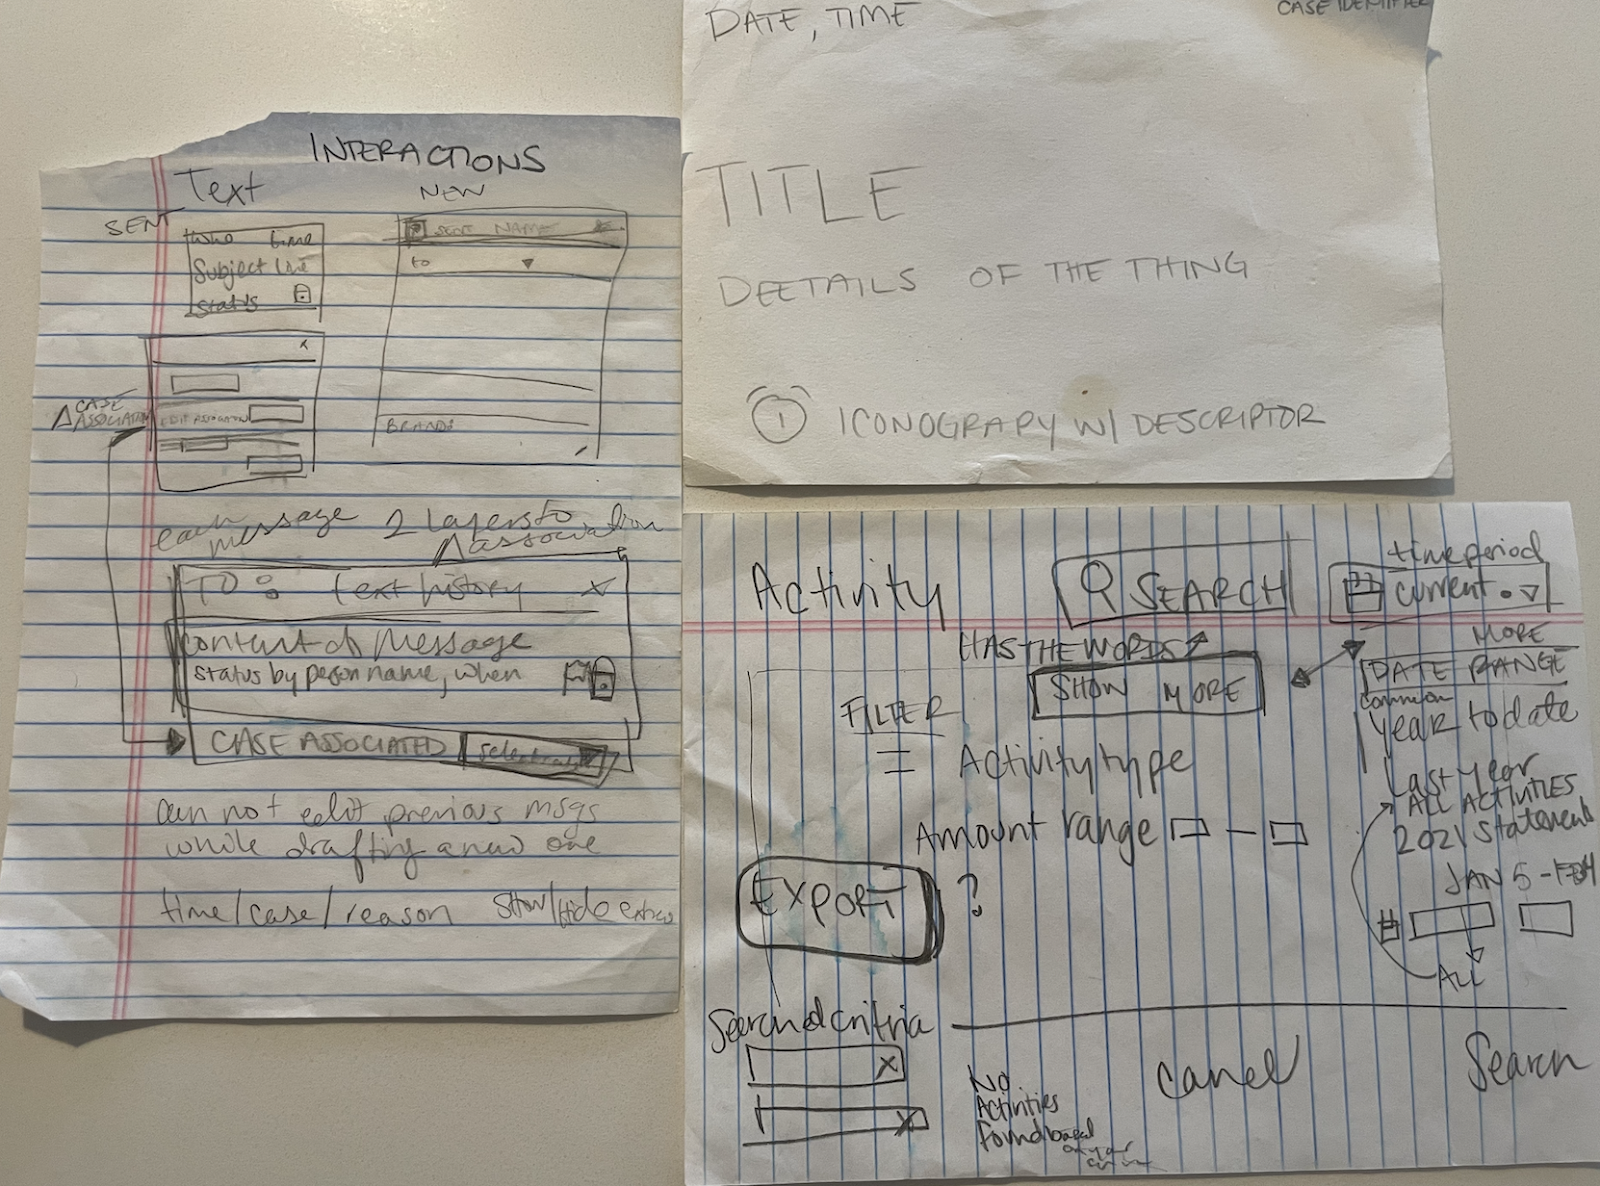 INTERACTIONS
Text
NEW
SENT
who time
Subject line
status
SENT NAME
to
CASE
Δ ASSOCIATION
EDIT ASSOCIATION
BRANDS
each message 2 layers to
Δ association
TO: text history X
content of message
status by person name, when
CASE ASSOCIATED select
can not edit previous msgs
while drafting a new one
time/case/reason show/hide extras
DATE, TIME
CASE IDENTIFIER
TITLE
DEETAILS OF THE THING
1 ICONOGRAPY W/ DESCRIPTOR
Activity
SEARCH
time period
current
HAS THE WORDS
SHOW MORE
MORE
DATE RANGE
common
year to date
Last year
ALL ACTIVITIES
2021 statements
JAN 5 -
ALL
FILTER
Activity type
Amount range —
EXPORT ?
Search critria
X
X
No
Activities
found based
on your
cancel
Search